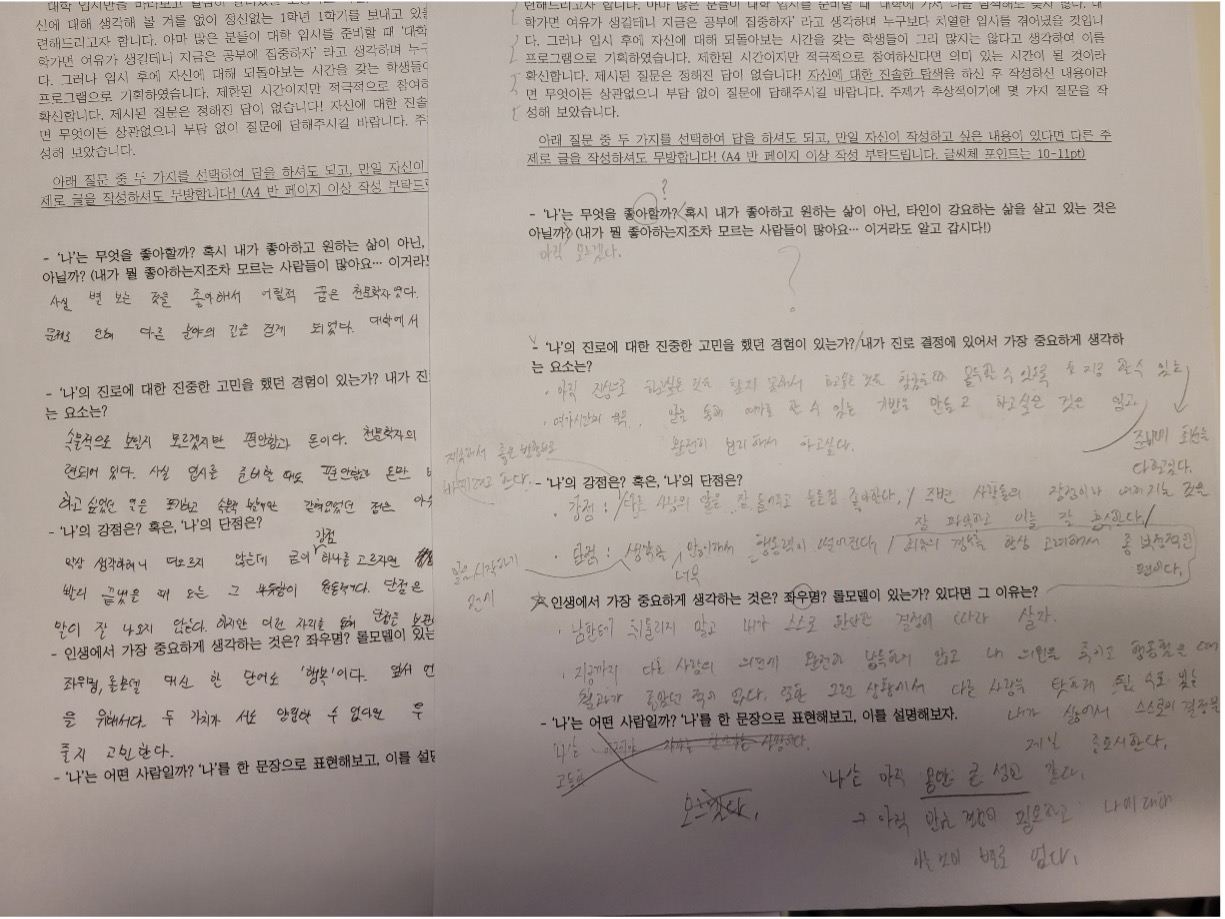 신에 대해 생각해 볼 겨를 없이 정신없는 1학년 1학기를 보내고 있
련해드리고자 합니다. 아마 많은 분들이 대학 입시를 준비할 때 '대학
학가면 여유가 생길테니 지금은 공부에 집중하자' 라고 생각하며 누구
다. 그러나 입시 후에 자신에 대해 되돌아보는 시간을 갖는 학생들이
프로그램으로 기획하였습니다. 제한된 시간이지만 적극적으로 참여하
확신합니다. 제시된 질문은 정해진 답이 없습니다! 자신에 대한 진솔
면 무엇이든 상관없으니 부담 없이 질문에 답해주시길 바랍니다. 주
성해 보았습니다.
아래 질문 중 두 가지를 선택하여 답을 하셔도 되고, 만일 자신이
제로 글을 작성하셔도 무방합니다! (A4 반 페이지 이상 작성 부탁드
- '나'는 무엇을 좋아할까? 혹시 내가 좋아하고 원하는 삶이 아닌,
아닐까? (내가 뭘 좋아하는지조차 모르는 사람들이 많아요… 이거라
사실 별 보는 것을 좋아해서 어릴적 꿈은 천문학자였다.
다른 분야의 길을 걷게 되었다. 대학에서
- '나'의 진로에 대한 진중한 고민을 했던 경험이 있는가? 내가 진
는 요소는?
속물적으로 보일지 모르겠지만 편안함과 돈이다. 천문학자의
련되어 있다. 사실 입시를 준비할 때도 편안함과 돈만
하고 싶었던 것은 포기하고
- '나'의 강점은? 혹은, '나'의 단점은?
막상 생각하려니 떠오르지 않는데 굳이 강점 하나를 고르자면
빨리 끝냈을 때 오는 그 단점은
말이 잘 나오지 않는다. 하지만 이런 자리를 통해 단점을
- 인생에서 가장 중요하게 생각하는 것은? 좌우명? 롤모델이 있는
좌우명, 롤모델 대신 한 단어로 '행복'이다. 앞서
을 위해서다. 두 가치가 서로 양립할 수 없다면
줄지 고민한다.
- '나'는 어떤 사람일까? '나'를 한 문장으로 표현해보고, 이를 설
학가면 여유가 생길테니 지금은 공부에 집중하자' 라고 생각하며 누구보다 치열한 입시를 겪어냈을 것입니
다. 그러나 입시 후에 자신에 대해 되돌아보는 시간을 갖는 학생들이 그리 많지는 않다고 생각하여 이를
프로그램으로 기획하였습니다. 제한된 시간이지만 적극적으로 참여하신다면 의미 있는 시간이 될 것이라
확신합니다. 제시된 질문은 정해진 답이 없습니다! 자신에 대한 진솔한 탐색을 하신 후 작성하신 내용이라
면 무엇이든 상관없으니 부담 없이 질문에 답해주시길 바랍니다. 주제가 추상적이기에 몇 가지 질문을 작
성해 보았습니다.
아래 질문 중 두 가지를 선택하여 답을 하셔도 되고, 만일 자신이 작성하고 싶은 내용이 있다면 다른 주
제로 글을 작성하셔도 무방합니다! (A4 반 페이지 이상 작성 부탁드립니다. 글씨체 포인트는 10-11pt)
?
- '나'는 무엇을 좋아할까? 혹시 내가 좋아하고 원하는 삶이 아닌, 타인이 강요하는 삶을 살고 있는 것은
아닐까? (내가 뭘 좋아하는지조차 모르는 사람들이 많아요… 이거라도 알고 갑시다!)
아직 모르겠다.
?
- '나'의 진로에 대한 진중한 고민을 했던 경험이 있는가? 내가 진로 결정에 있어서 가장 중요하게 생각하
는 요소는?
· 아직 진심으로 하고싶은 것을 찾지 못해서 하고싶은 것을 지금 할 수 있는
· 여가시간의 일을 통해 여가를 할 수 있는 기반을 만들고 하고싶은 것은 일과
완전히 분리해서 하고싶다.
준비에 최선을
다하겠다.
좋은 방향으로
바꾸려고 한다.
- '나'의 강점은? 혹은, '나'의 단점은?
· 강점 : 다른 사람의 말을 잘 들어주고 듣는걸 좋아한다. / 주변 사람들의 장점이나 것을
잘 파악하고 이를 잘 흡수한다. /
· 단점 : 생각을 너무 많이해서 행동력이 떨어진다. / 최악의 경우를 항상 고려해서 좀 부정적인
편이다.
일을 시작하기
전에
- 인생에서 가장 중요하게 생각하는 것은? 좌우명? 롤모델이 있는가? 있다면 그 이유는?
· 남한테 휘둘리지 말고 내가 스스로 판단한 결정에 따라 살자.
· 지금까지 다른 사람의 의견에 완전히 납득하지 않고 내 의견을 죽이고 행동했을 때
결과가 좋았던 적이 없다. 또한 그런 상황에서 다른 사람을 탓하게 될 수도 있는
내가 싫어서 스스로의 결정을
제일 중요시한다.
- '나'는 어떤 사람일까? '나'를 한 문장으로 표현해보고, 이를 설명해보자.
모르겠다.
'나'는 아직 같다.
→ 아직 많은 경험이 필요하고 나에 대해
아는 것이 별로 없다.